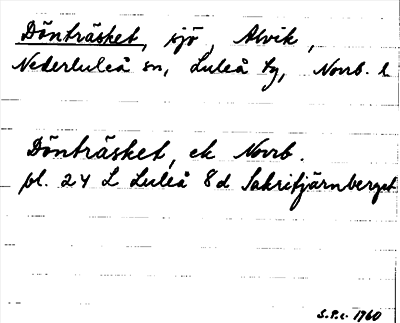 Dönträsket, sjö, Alvik,
Nederluleå sn, Luleå tg, Norrb. l
Dönträsket, ek Norrb.
bl. 24 L Luleå 8d Sakrifjärnberget
S.P.c. 1960